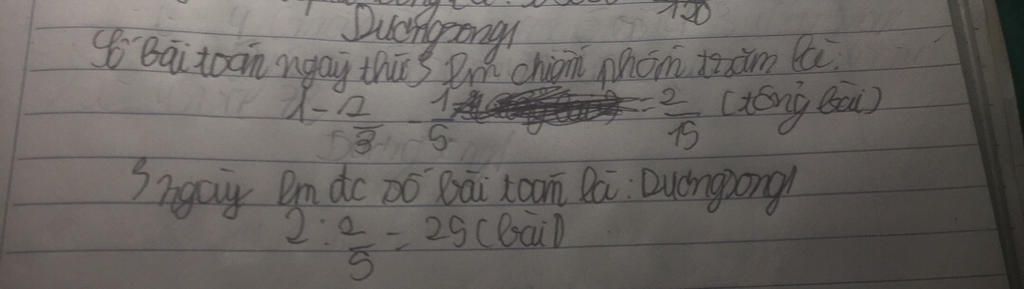 Duongzong1
Số bài toán ngày thứ 3 làm chiếm phần trăm là:
1 - 2/3 - 1/5 = 2/15 (tổng bài)
3 ngày làm đc số bài toán là: Duongzong1
2 : 2/5 = 25 (bài)